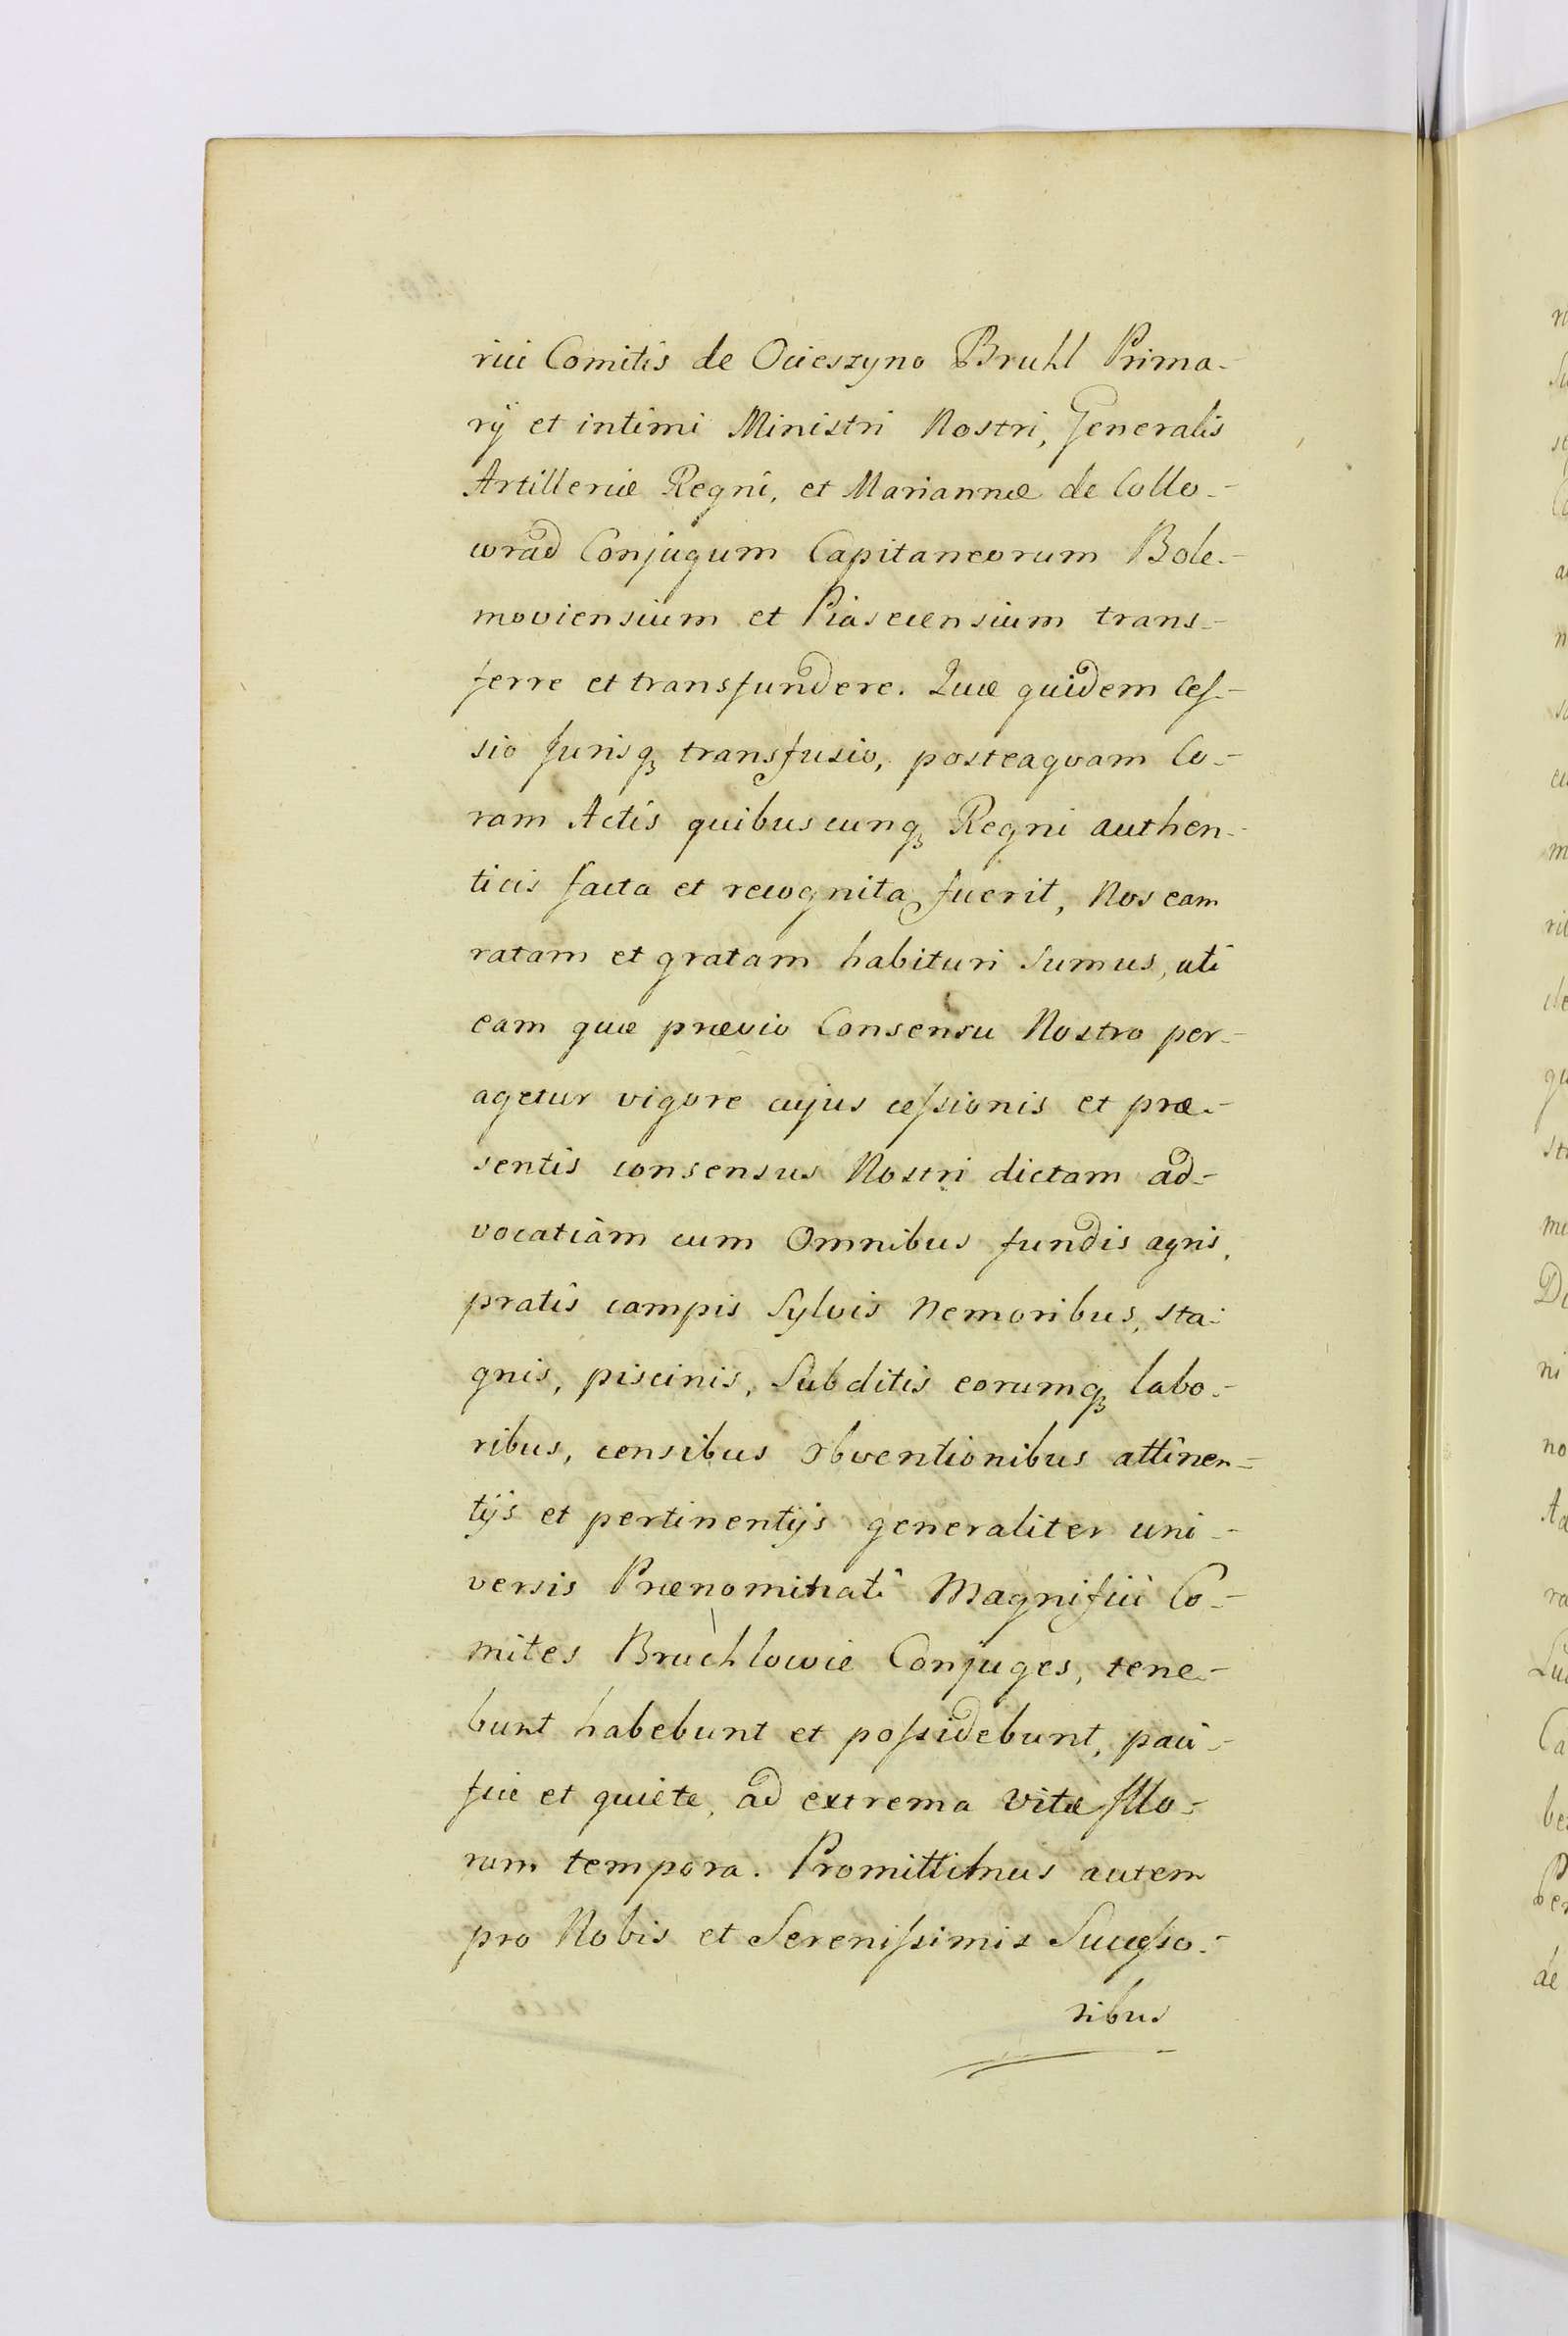 rici Comitis de Ocieszyno Bruhl Prima-
rÿ et intimi Ministri Nostri, Generalis
Artilleriæ Regni, et Mariannæ de Collo-
wrad Conjugum Capitaneorum Bole-
moviensium et Piasecensium trans-
ferre et transfundere. Quæ quidem Ceſ-
sio Jurisq̃ transfusio, posteaquam Co-
ram Actis quibuscunq̃ Regni authen-
ticis facta et recognita fuerit, Nos eam
ratam et gratam habituri Sumus, uti
eam quæ prævio Consensu Nostro per-
agetur vigore cujus ceſsionis et præ-
sentis consensus Nostri dictam ad-
vocatiam cum Omnibus fundis agris,
pratis campis Sylvis Nemoribus, sta-
gnis, piscinis, Subditis eorumq̃ labo-
ribus, censibus obventionibus attinen-
tijs et pertinentijs generaliter uni-
versis Prænominati Magnifici Co-
mites Bruchlowie Conjuges, tene-
bunt habebunt et poſsidebunt, paci-
fice et quiete, ad extrema vitæ Illo-
rum tempora. Promittimus autem
pro Nobis et Sereniſsimis Succeſso-
ribus